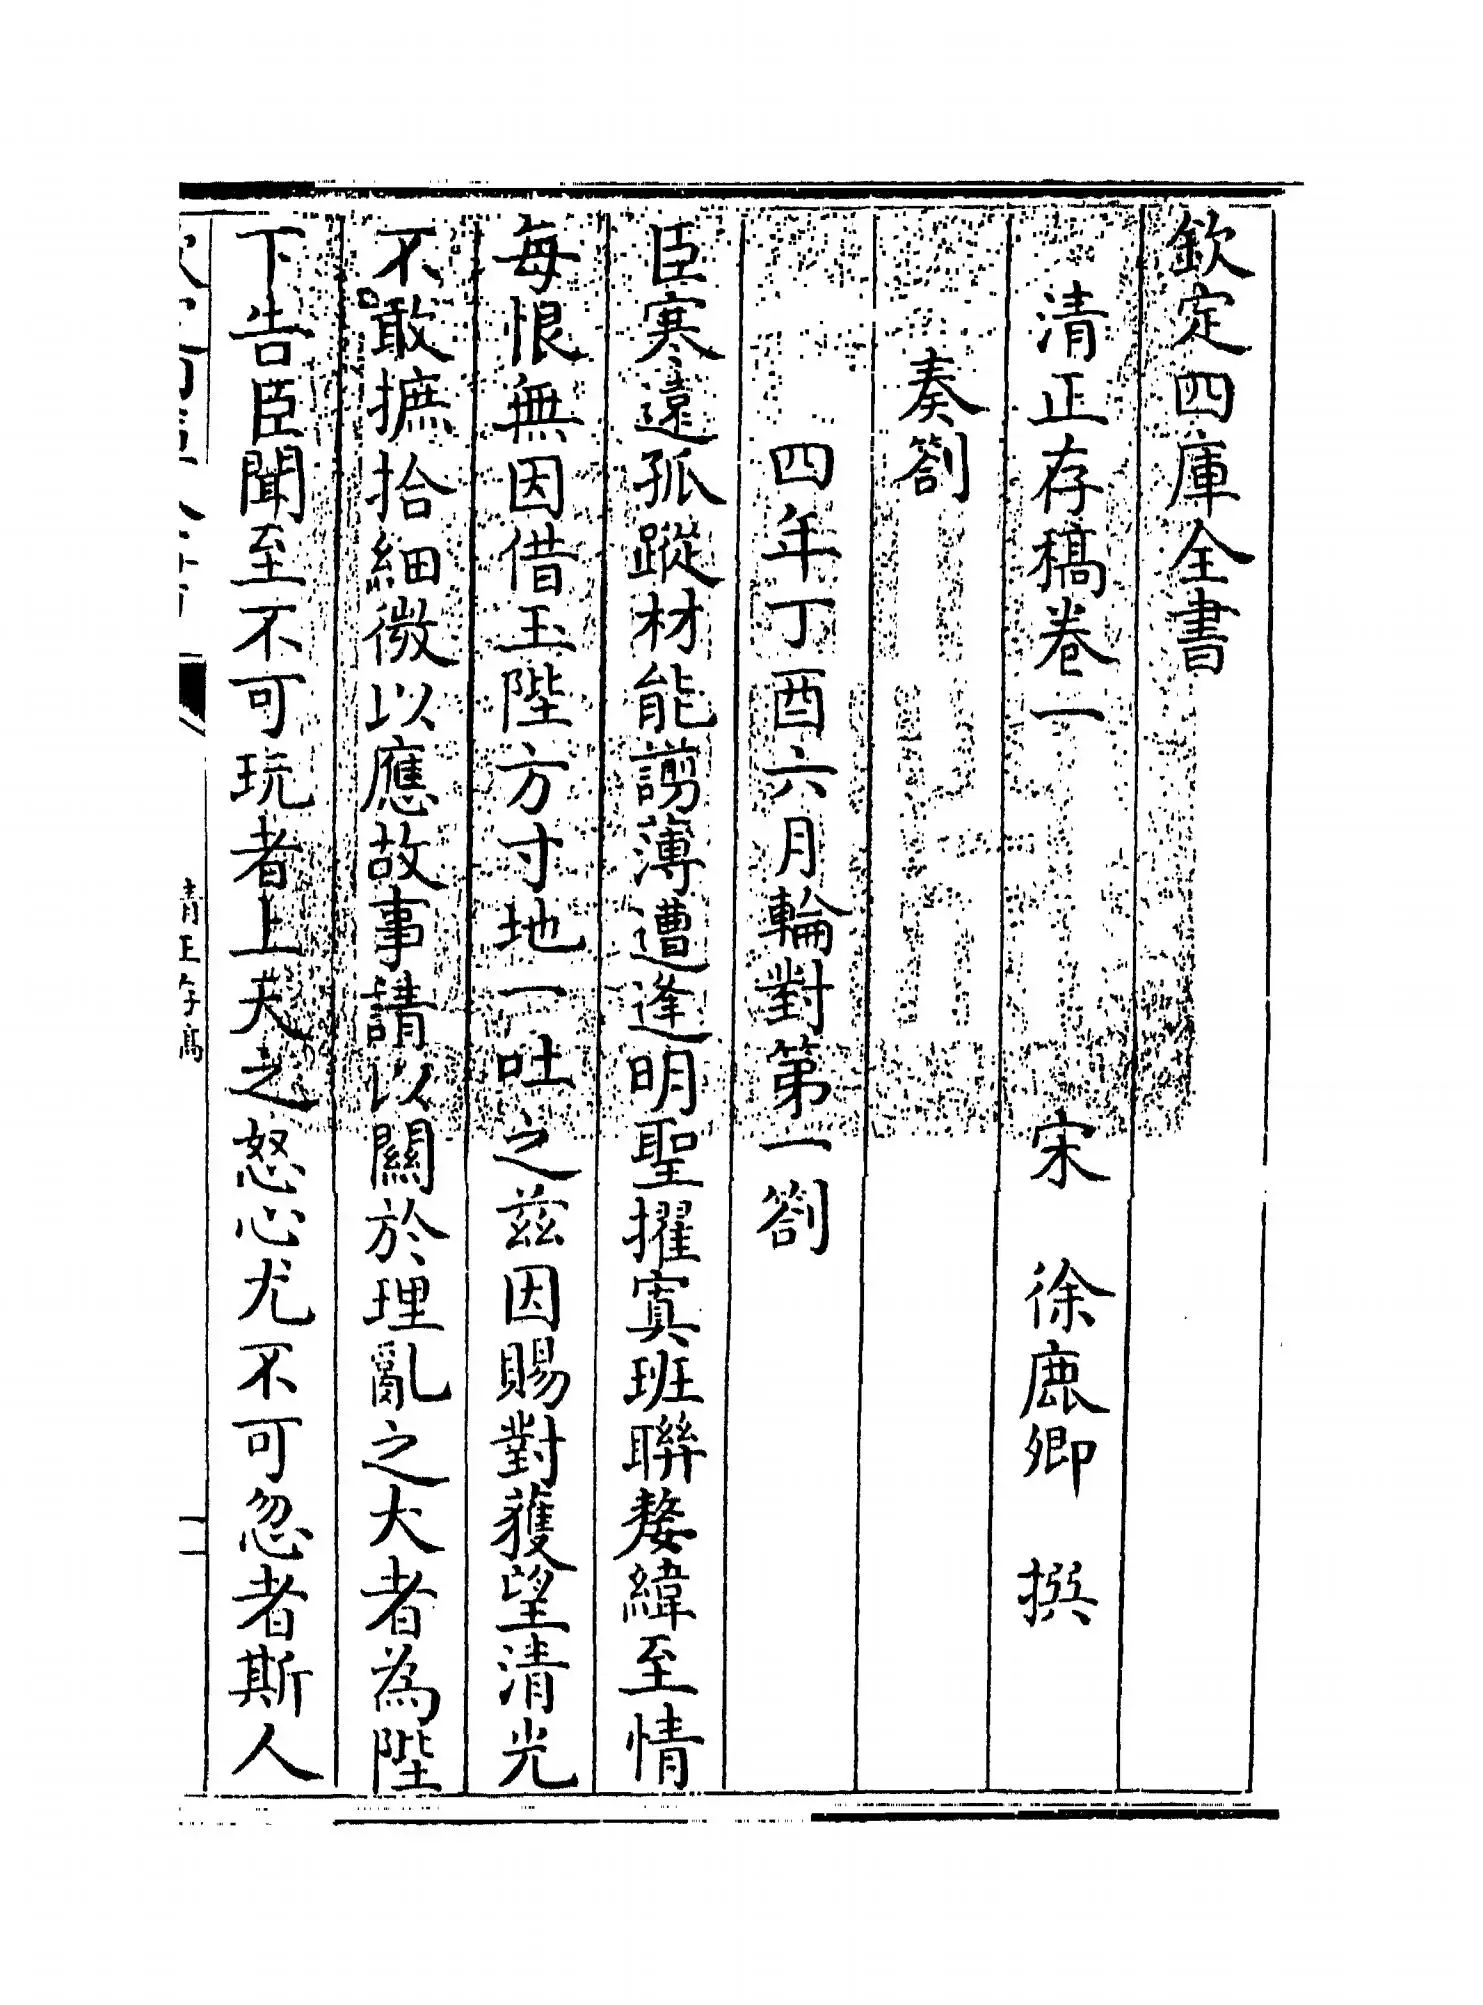 欽定四庫全書
清正存稿卷一 宋 徐鹿卿 撰
奏劄
四年丁酉六月輪對第一劄
臣寒遠孤蹤材能譾薄遭逢明聖擢寘班聯嫠緯至情
每恨無因借玉陛方寸地一吐之兹因賜對獲望清光
不敢摭拾細微以應故事請以關於理亂之大者為陛
下告臣聞至不可玩者上天之怒心尤不可忽者斯人
清正存稿
一